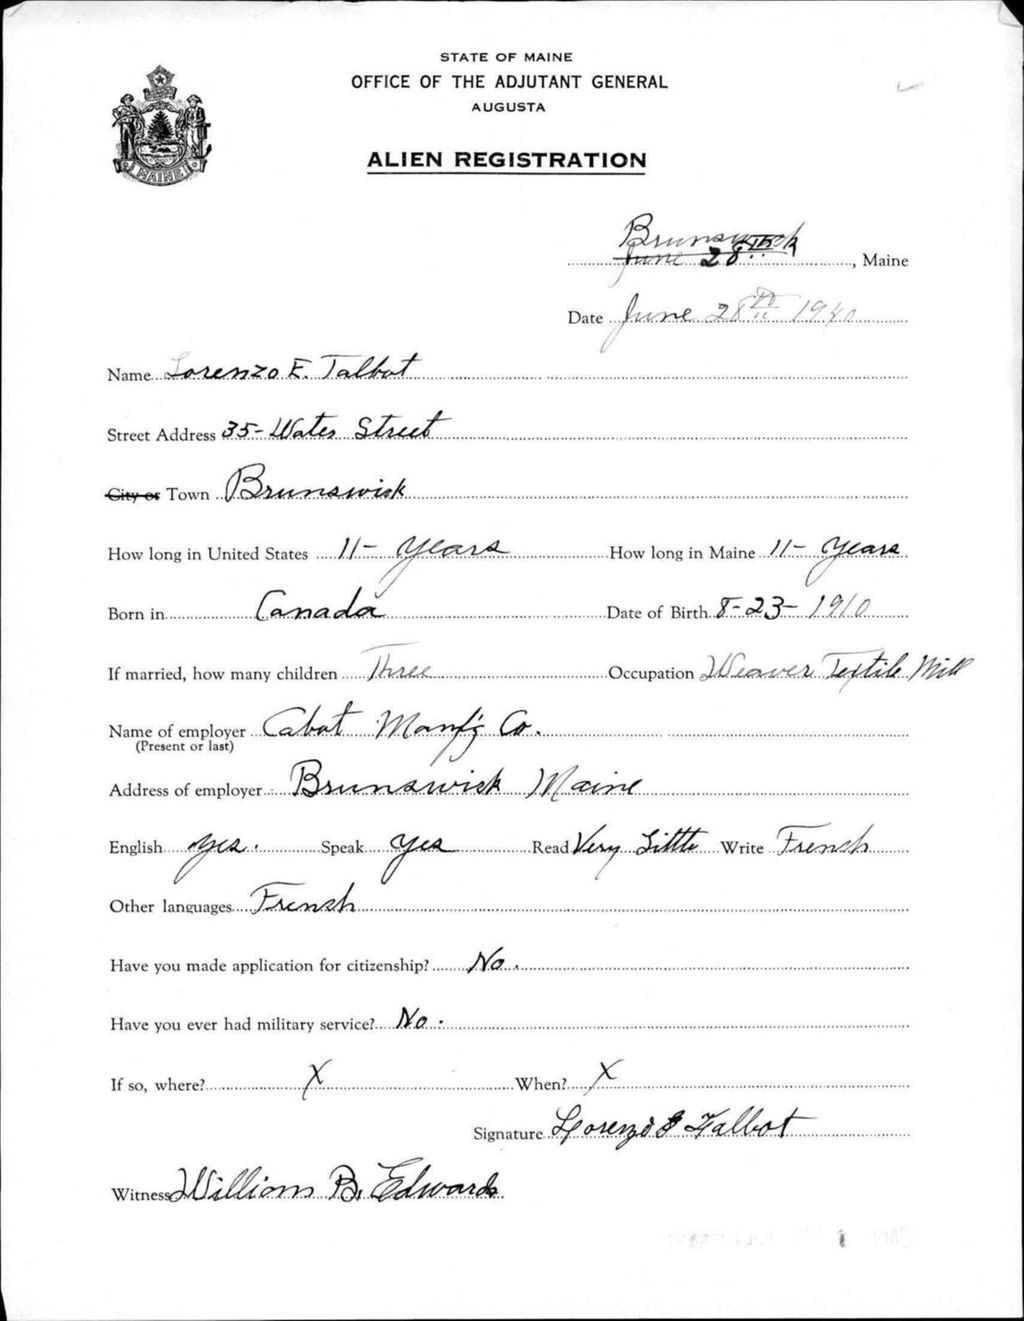 STATE OF MAINE
OFFICE OF THE ADJUTANT GENERAL
AUGUSTA
MAINE
ALIEN REGISTRATION
Brunswick
June 28TH, Maine
Date June 28th 1940
Name Lorenzo E. Talbot
Street Address 35- Water Street
City or Town Brunswick
How long in United States 11- Years How long in Maine 11- Years
Born in Canada Date of Birth 8-23-1910
If married, how many children Three Occupation Weaver Textile Mill
Name of employer Cabot Manf'g Co.
(Present or last)
Address of employer Brunswick Maine
English Yes. Speak Yes Read Very Little Write French
Other languages French
Have you made application for citizenship? No.
Have you ever had military service? No.
If so, where? X When? X
Signature Lorenzo E Talbot
Witness William B. Edwards